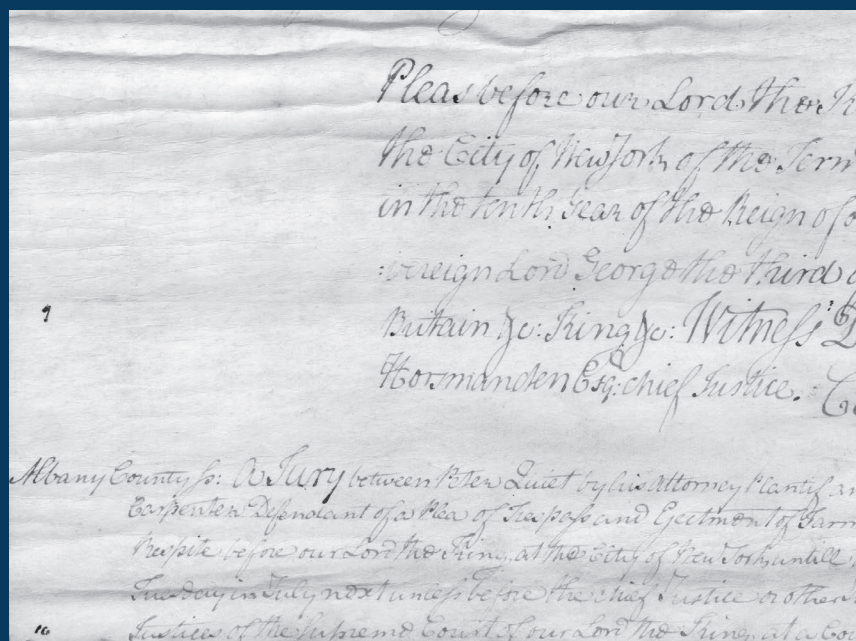 Pleas before our Lord the
the City of New York of the Term
in the tenth Year of the Reign of
Lord George the third
Britain &c: King &c: Witness D
Horsmanden Esqr: chief Justice. :
9
Albany County ss: A Jury between Peter Quiet by his attorney Plantif an
Carpenter Defendant of a Plea of Trespass and Ejectment of Farm
Respite before our Lord the King at the City of New York untill
Tuesday in July next unless before the chief Justice or other
Justices of the Supreme Court of our Lord the King at a Co
10